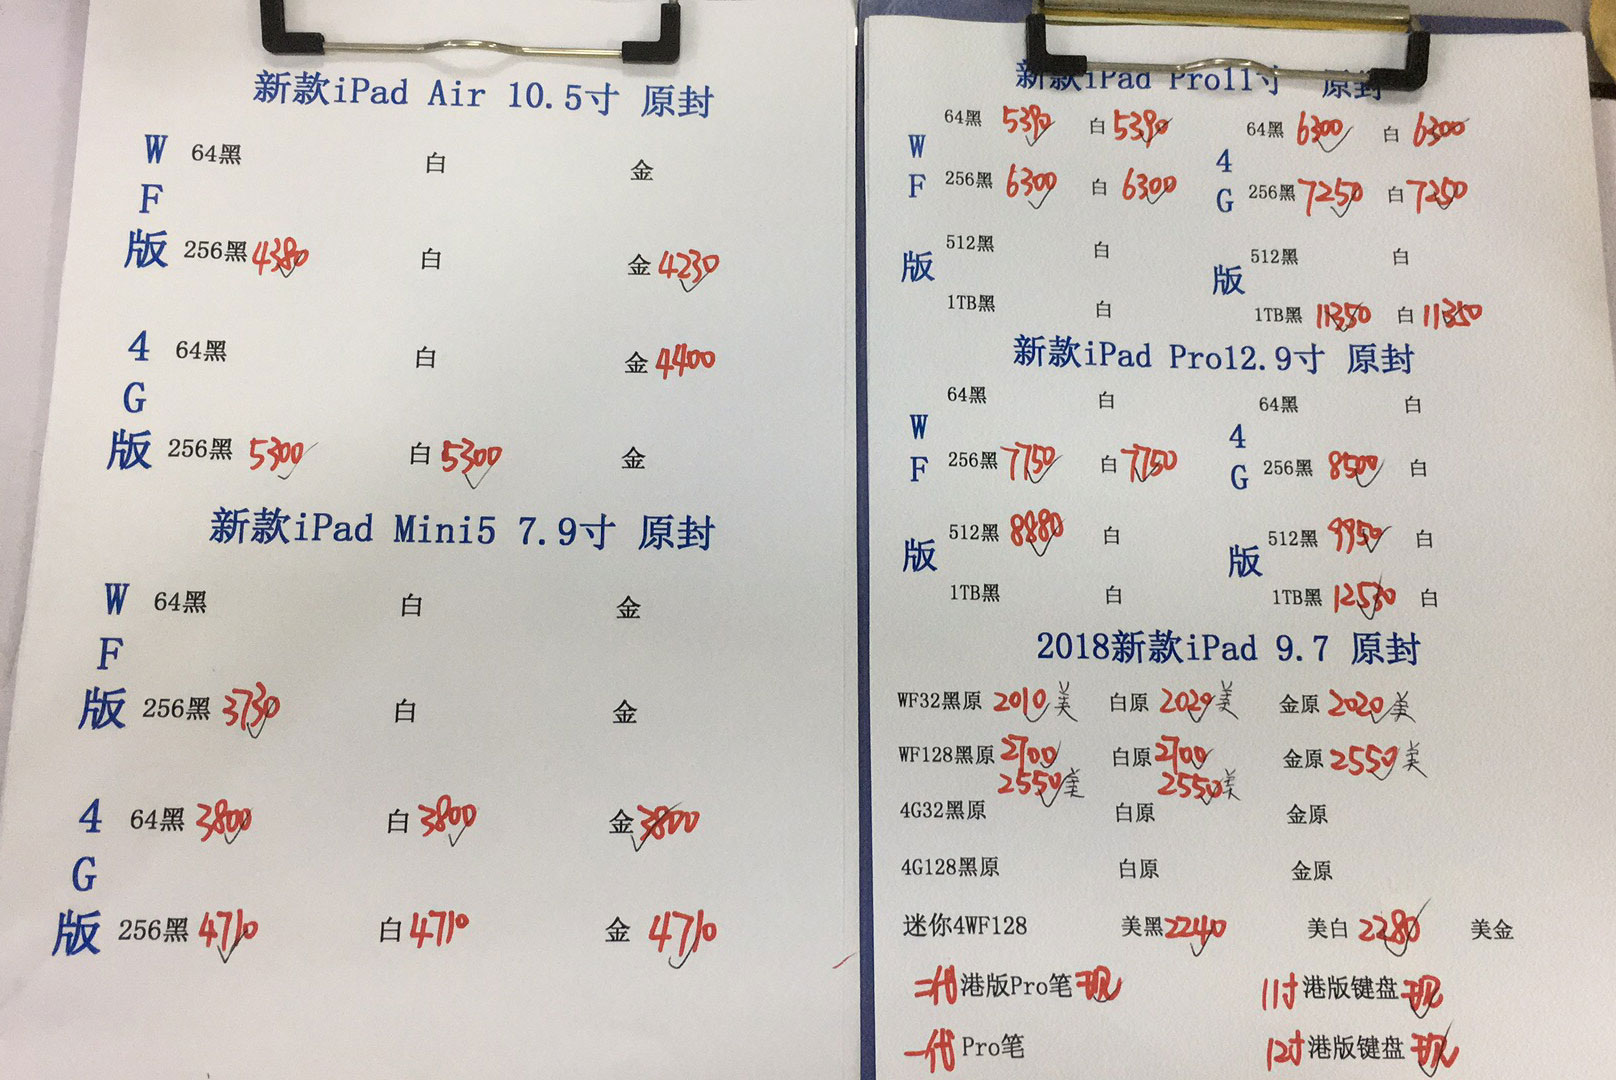 新款iPad Air 10.5寸 原封
WF版
64黑 白 金
256黑 4380 白 金 4230
4G版
64黑 白 金 4400
256黑 5300 白 5300 金
新款iPad Mini5 7.9寸 原封
WF版
64黑 白 金
256黑 3730 白 金
4G版
64黑 3800 白 3800 金 3800
256黑 4710 白 4710 金 4710
新款iPad Pro11寸 原封
WF版
64黑 5390 白 5390
256黑 6300 白 6300
512黑 白
1TB黑 白
4G版
64黑 6300 白 6300
256黑 7250 白 7250
512黑 白
1TB黑 11350 白 11350
新款iPad Pro12.9寸 原封
WF版
64黑 白
256黑 7750 白 7750
512黑 8880 白
1TB黑 白
4G版
64黑 白
256黑 8500 白
512黑 9950 白
1TB黑 白
2018新款iPad 9.7 原封
WF32黑原 2010 美 白原 2020 美 金原 2020 美
WF128黑原 2700 白原 2700 金原 2550 美
2550 美 2550 美
4G32黑原 白原 金原
4G128黑原 白原 金原
迷你4WF128 美黑 2240 美白 2280 美金
二代 港版Pro笔 现 11寸 港版键盘 现
一代 Pro笔 12寸 港版键盘 现